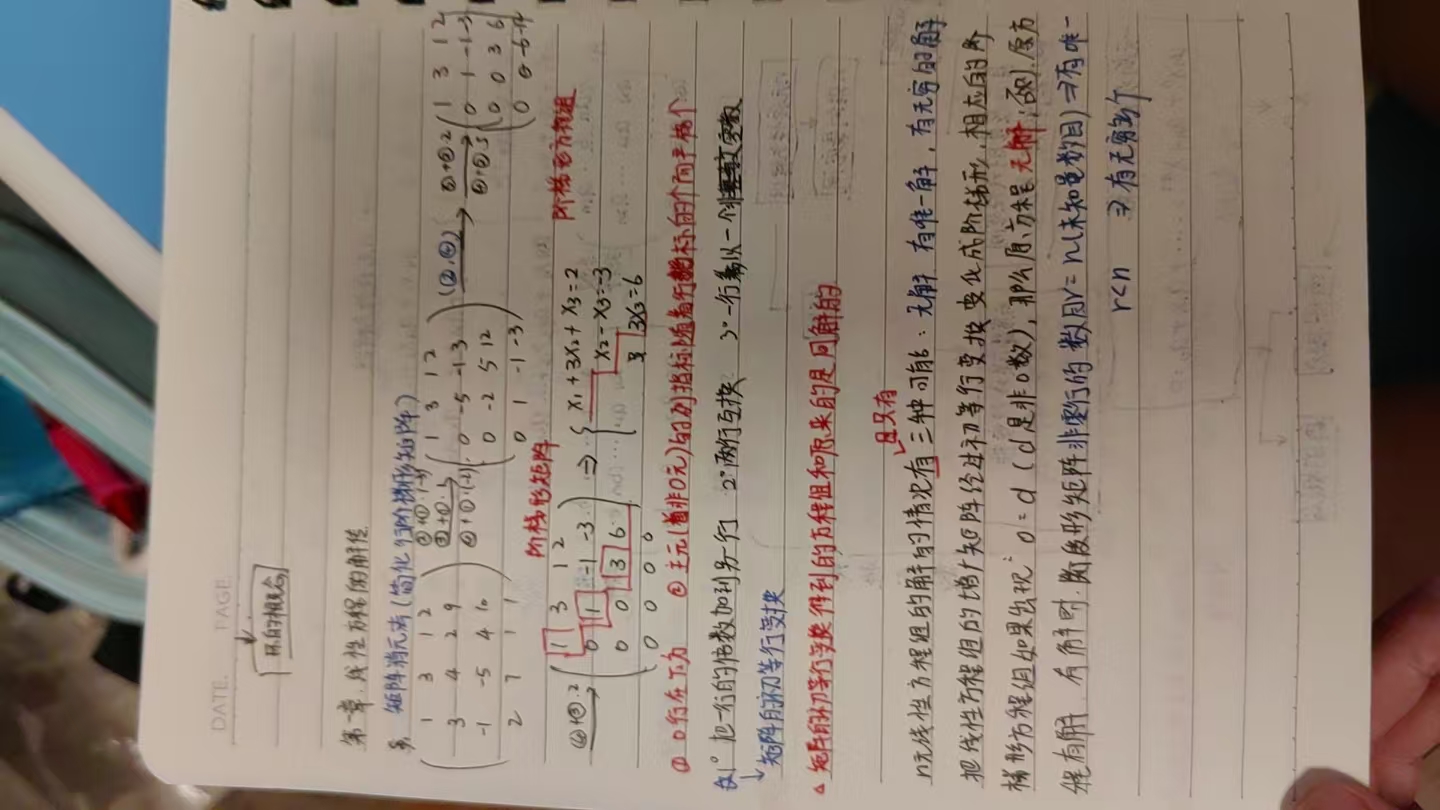 DATE. PAGE
环的概念
第一章.线性方程的解法
矩阵消元法(简化 行阶梯形矩阵)
( 1 3 1 2
3 4 2 9
-1 -5 4 10
2 7 1 1 )
②+①·(-3)
③+①·1
④+①·(-2)
( 1 3 1 2
0 -5 -1 3
0 -2 5 12
0 1 -1 -3 )
(②,④)
③+②·2
④+②·5
( 1 3 1 2
0 1 -1 -3
0 0 3 6
0 0 -6 -12
④+③·2
( 1 3 1 2
0 1 -1 -3
0 0 3 6
0 0 0 0 )
阶梯形矩阵
⇒ { x₁+3x₂+x₃=2
x₂-x₃=-3
3x₃=6
阶梯形方程组
① 0行在下方 ② 主元(首非0元)的列指标随着行指标的
1° 把一行的倍数加到另一行 2° 两行互换 3° 一行乘以一个
↓ 矩阵的初等行变换
△ 矩阵的初等行变换得到的方程组和原来的是同解的
且只有
n元线性方程组的解的情况有三种可能:无解 有唯一解,有无穷的解
把线性方程组的增广矩阵经过初等行变换变化成阶梯形,相应的阶
梯形方程组如果出现"0=d(d是非0数),那么原方程无解;否则,原方
程有解,有解时,阶梯形矩阵非零行的数目r=n(未知量数目)⇒有唯一
r<n ⇒有无穷多个